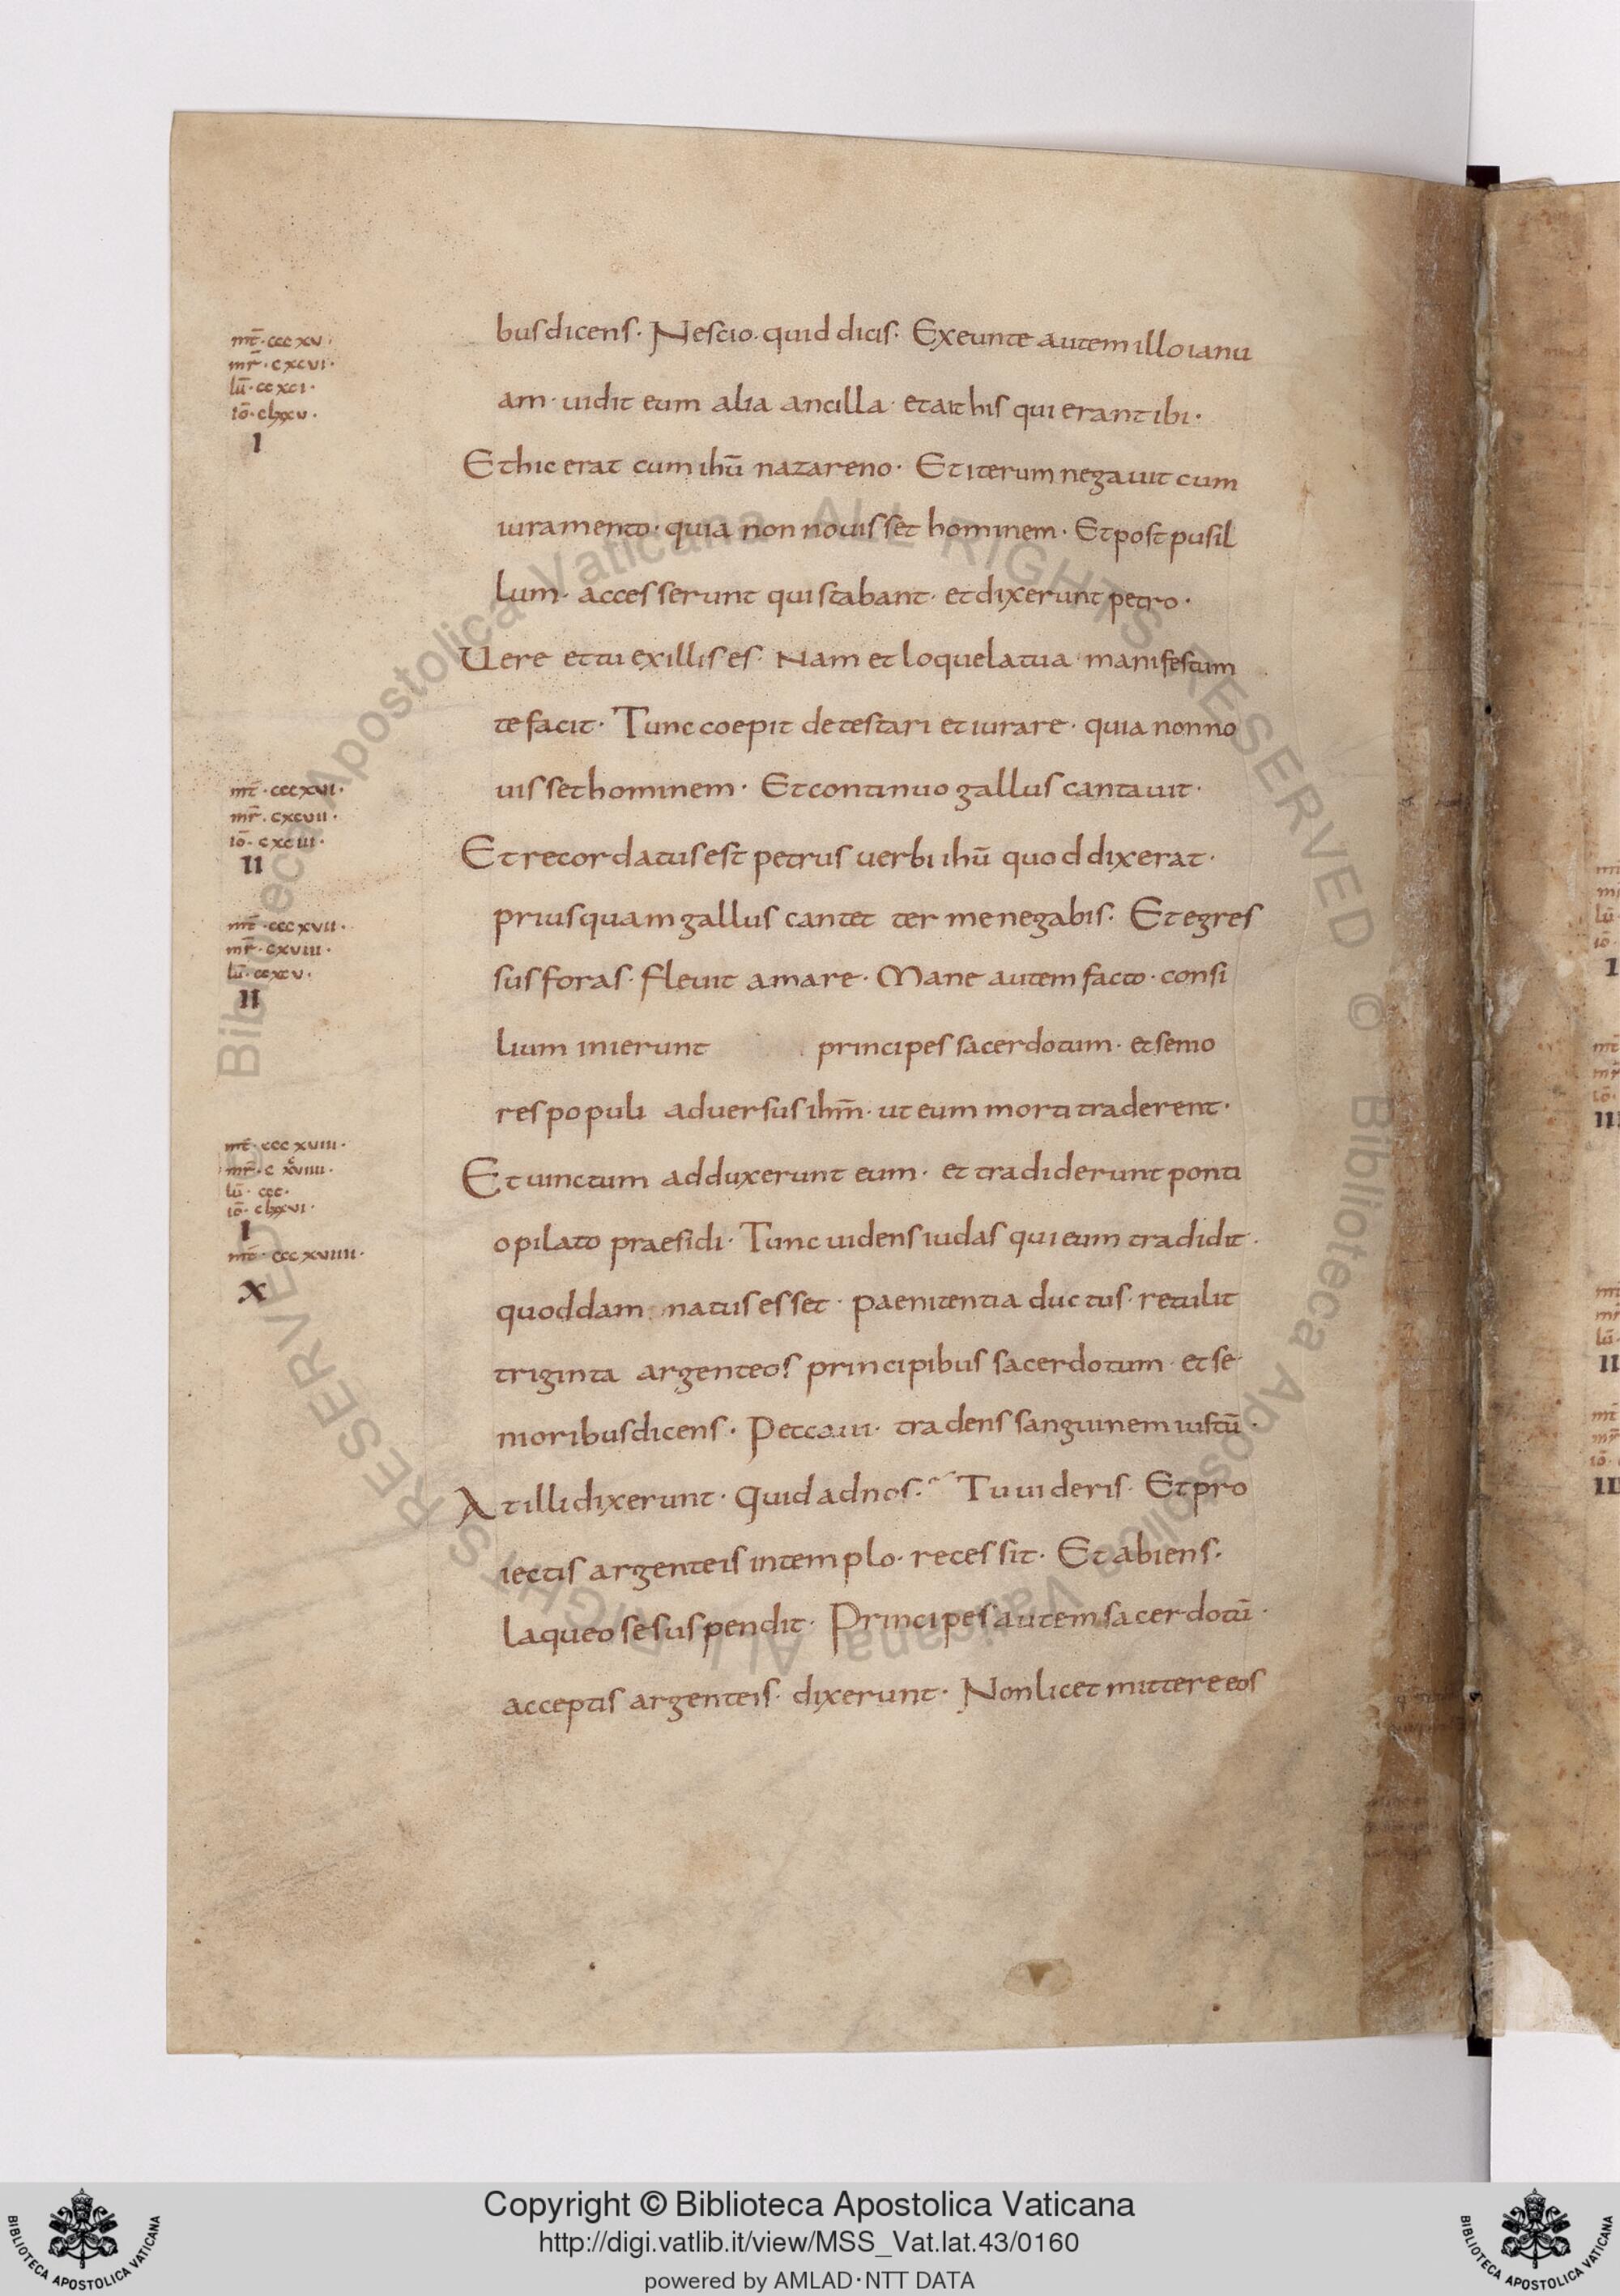 mt̄ · ccc xv ·
mr̄ · cxcvi ·
lū · cc xci ·
iō · clxxv ·
I
bus dicens · Nescio quid dicis · Exeunte autem illo ianu
am · uidit eum alia ancilla · et ait his qui erant ibi ·
Et hic erat cum ihū nazareno · Et iterum negauit cum
iuramento · quia non nouisset hominem · Et post pusil
lum · accesserunt qui stabant · et dixerunt petro ·
Uere et tu ex illis es · Nam et loquela tua manifestum
te facit · Tunc coepit detestari et iurare · quia non no
uisset hominem · Et continuo gallus cantauit ·
mt̄ · cccxvi ·
mr̄ · cxcvii ·
iō · cxciii ·
II
Et recordatus est petrus uerbi ihū quod dixerat ·
priusquam gallus cantet ter me negabis · Et egres
mt̄ · cccxvii ·
mr̄ · cxviii ·
lū · ccxcv ·
II
sus foras · fleuit amare · Mane autem facto · consi
lium inierunt principes sacerdotum · et senio
res populi aduersus ihm̄ · ut eum morti traderent ·
mt̄ · ccc xviii ·
mr̄ · c xviiii ·
lū · ccc ·
iō · clxxvi ·
I
Et uinctum adduxerunt eum · et tradiderunt ponti
o pilato praesidi · Tunc uidens iudas qui eum tradidit ·
mt̄ · ccc xviiii ·
X
quod damnatus esset · paenitentia ductus · retulit
triginta argenteos principibus sacerdotum · et se
nioribus dicens · Peccaui · tradens sanguinem iustū ·
At illi dixerunt · Quid ad nos · Tu uideris · Et pro
iectis argenteis in templo · recessit · Et abiens ·
laqueo se suspendit · Principes autem sacerdotū ·
acceptis argenteis · dixerunt · Non licet mittere eos
Biblioteca Apostolica Vaticana ALL RIGHTS RESERVED © Biblioteca Apostolica Vaticana ALL RIGHTS RESERVED
Copyright © Biblioteca Apostolica Vaticana
http://digi.vatlib.it/view/MSS_Vat.lat.43/0160
powered by AMLAD·NTT DATA
BIBLIOTECA APOSTOLICA VATICANA
BIBLIOTECA APOSTOLICA VATICANA